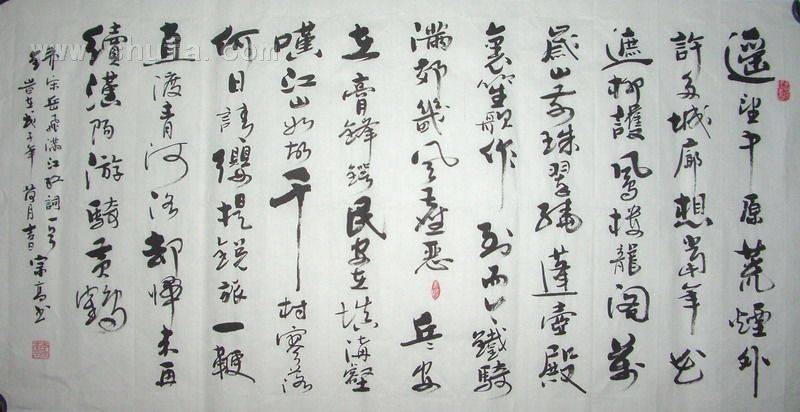 遥望中原荒煙外
許多城廓想當年花
遮柳護鳳樓龍阁萬
歲山前珠翠繞蓬壺殿
裏笙歌作到而今鐵騎
滿郊畿風塵惡兵安
在膏鋒鍔民安在填溝壑
嘆江山如故千村寥落
何日請纓提銳旅一鞭
直渡青河洛却歸来再
續漢陽游騎黄鶴
宋岳飛滿江紅詞一首
岁在戊子年荷月宗高书